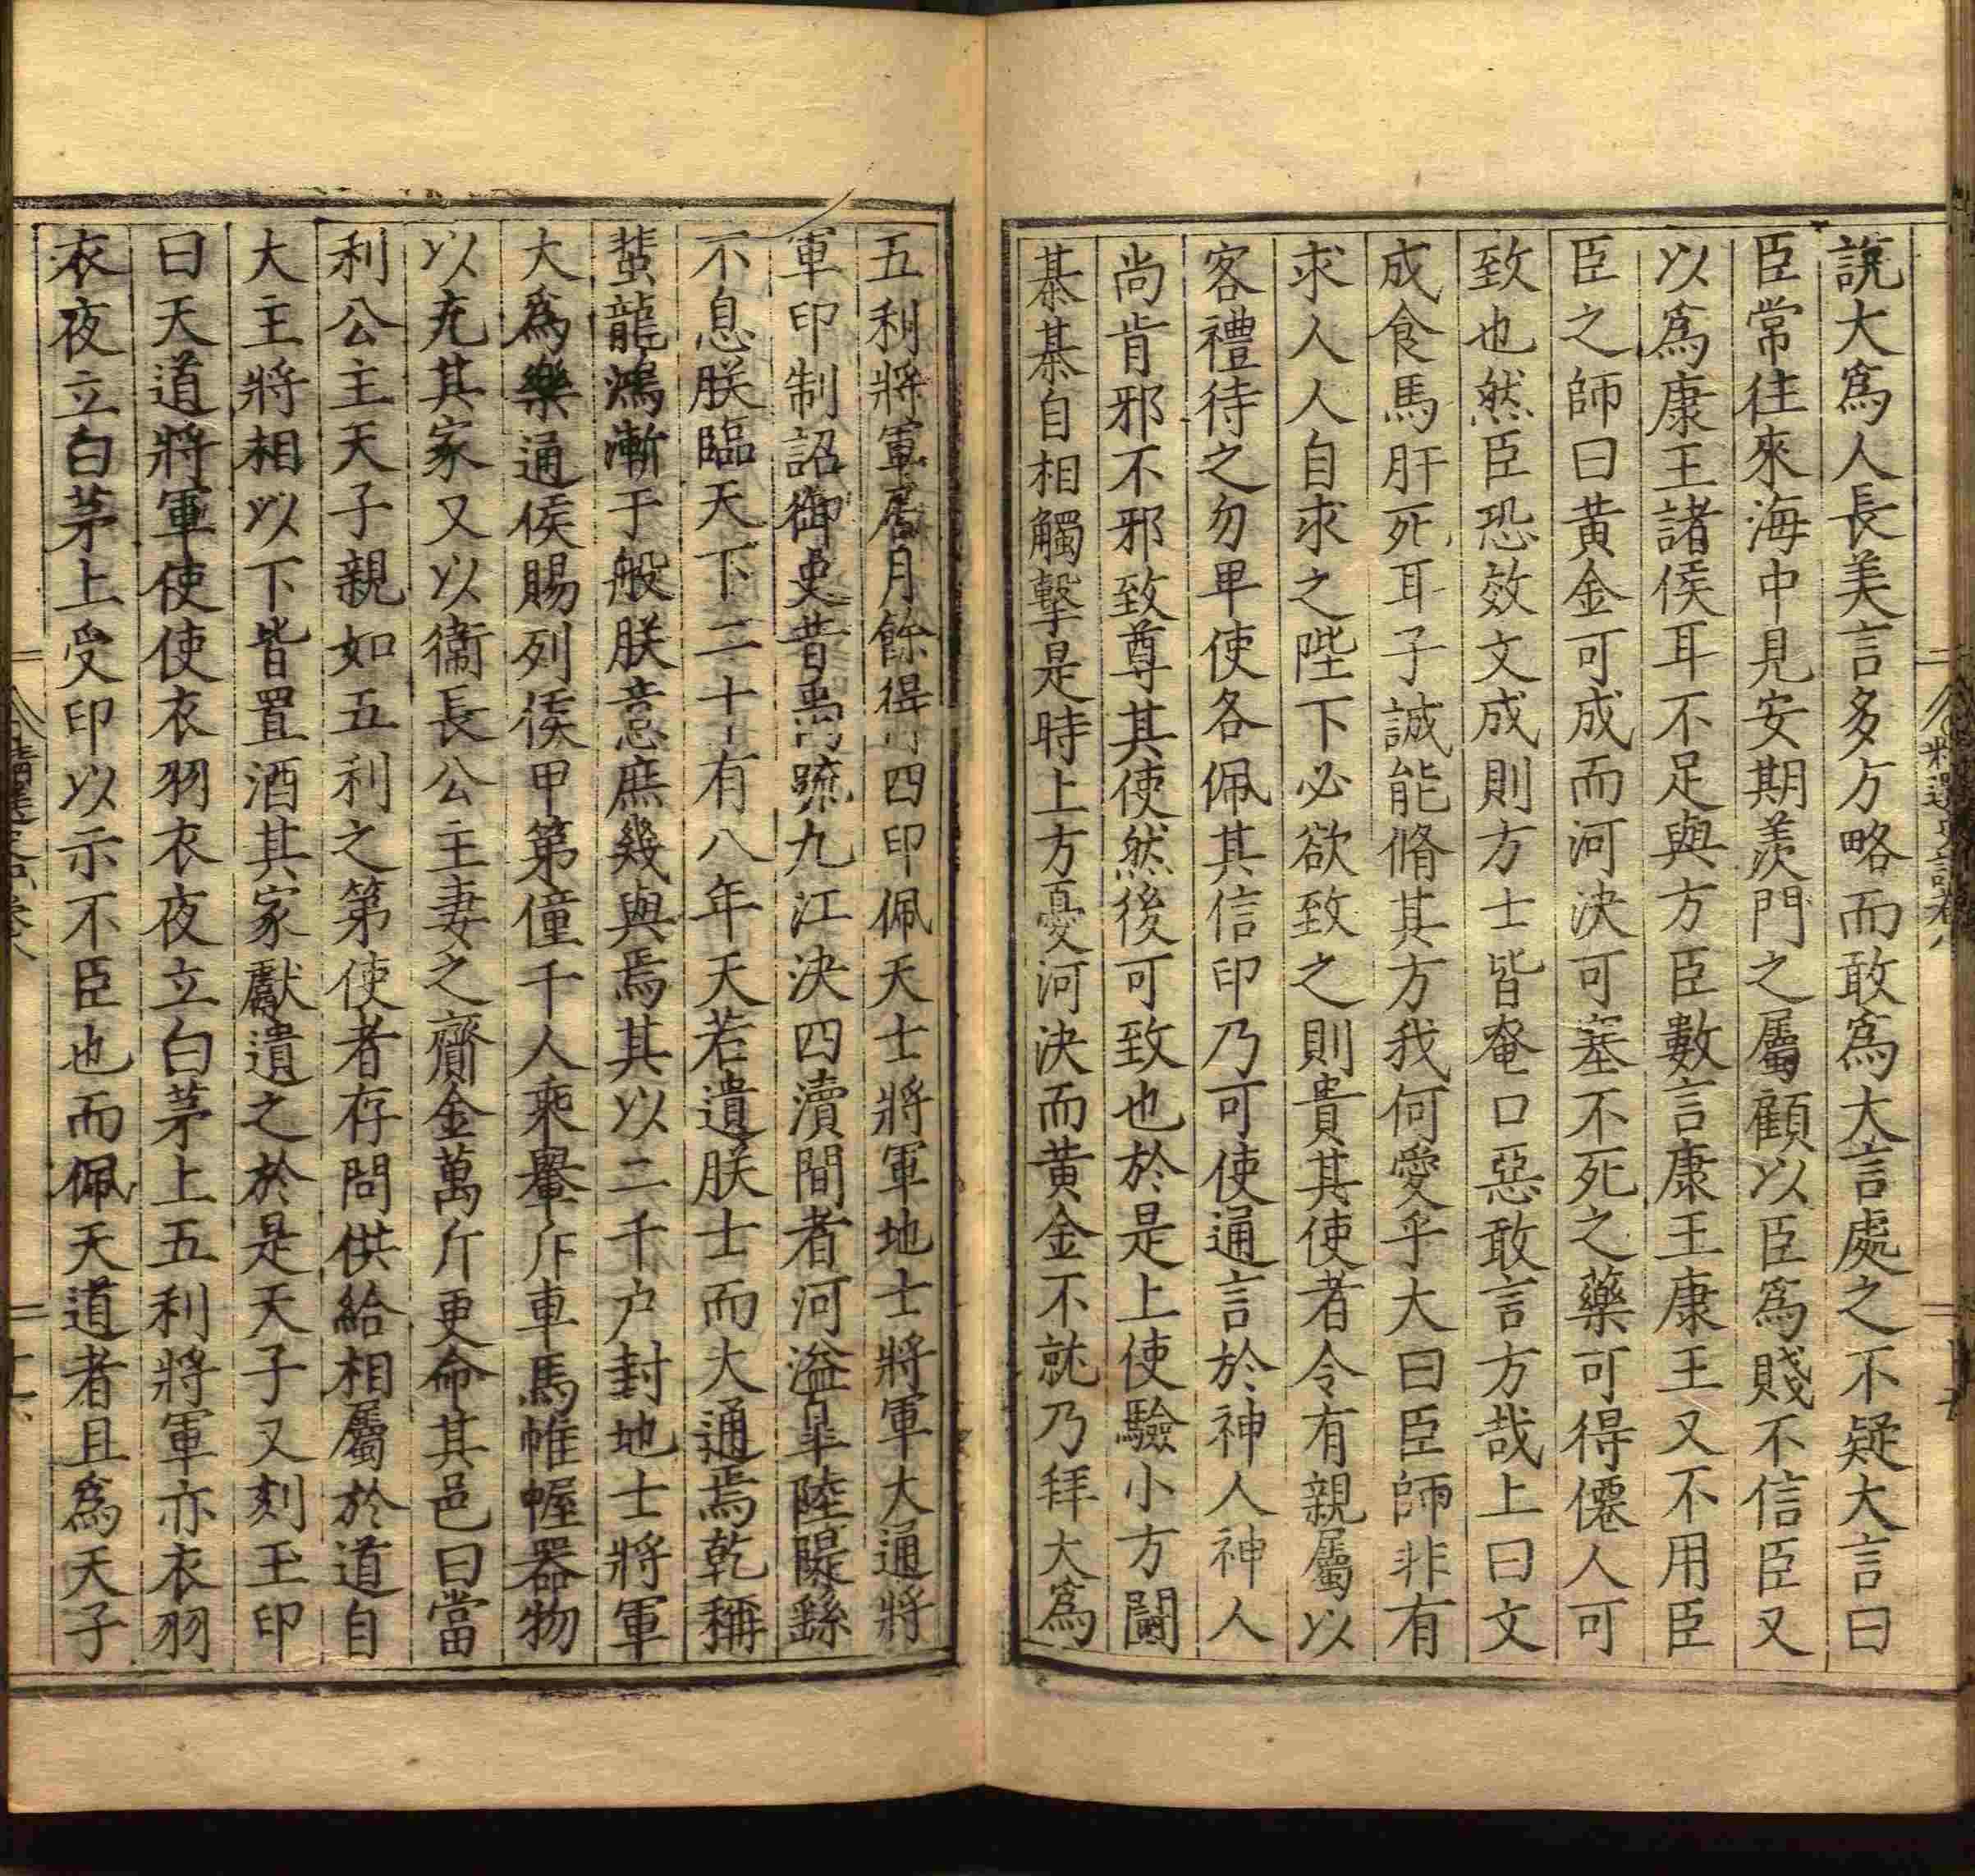 說大爲人長美言多方略而敢爲大言處之不疑大言曰
臣常徃來海中見安期羨門之屬顧以臣爲賤不信臣又
以爲康王諸侯耳不足與方臣數言康王康王又不用臣
臣之師曰黃金可成而河決可塞不死之藥可得僊人可
致也然臣恐效文成則方士皆奄口惡敢言方哉上曰文
成食馬肝死耳子誠能脩其方我何愛乎大曰臣師非有
求人人自求之陛下必欲致之則貴其使者令有親屬以
客禮待之勿卑使各佩其信印乃可使通言於神人神人
尚肯邪不邪致尊其使然後可致也於是上使驗小方鬭
棊棊自相觸擊是時上方憂河決而黃金不就乃拜大爲
五利將軍居月餘得四印佩天士將軍地士將軍大通將
軍印制詔御史昔禹疏九江決四瀆間者河溢皐陸隄繇
不息朕臨天下二十有八年天若遺朕士而大通焉乾稱
蜚龍鴻漸于般朕意庶幾與焉其以二千户封地士將軍
大爲樂通侯賜列侯甲第僮千人乘轝斥車馬帷幄器物
以充其家又以衞長公主妻之齎金萬斤更命其邑曰當
利公主天子親如五利之第使者存問供給相屬於道自
大主將相以下皆置酒其家獻遺之於是天子又刻玉印
曰天道將軍使使衣羽衣夜立白茅上五利將軍亦衣羽
衣夜立白茅上受印以示不臣也而佩天道者且爲天子